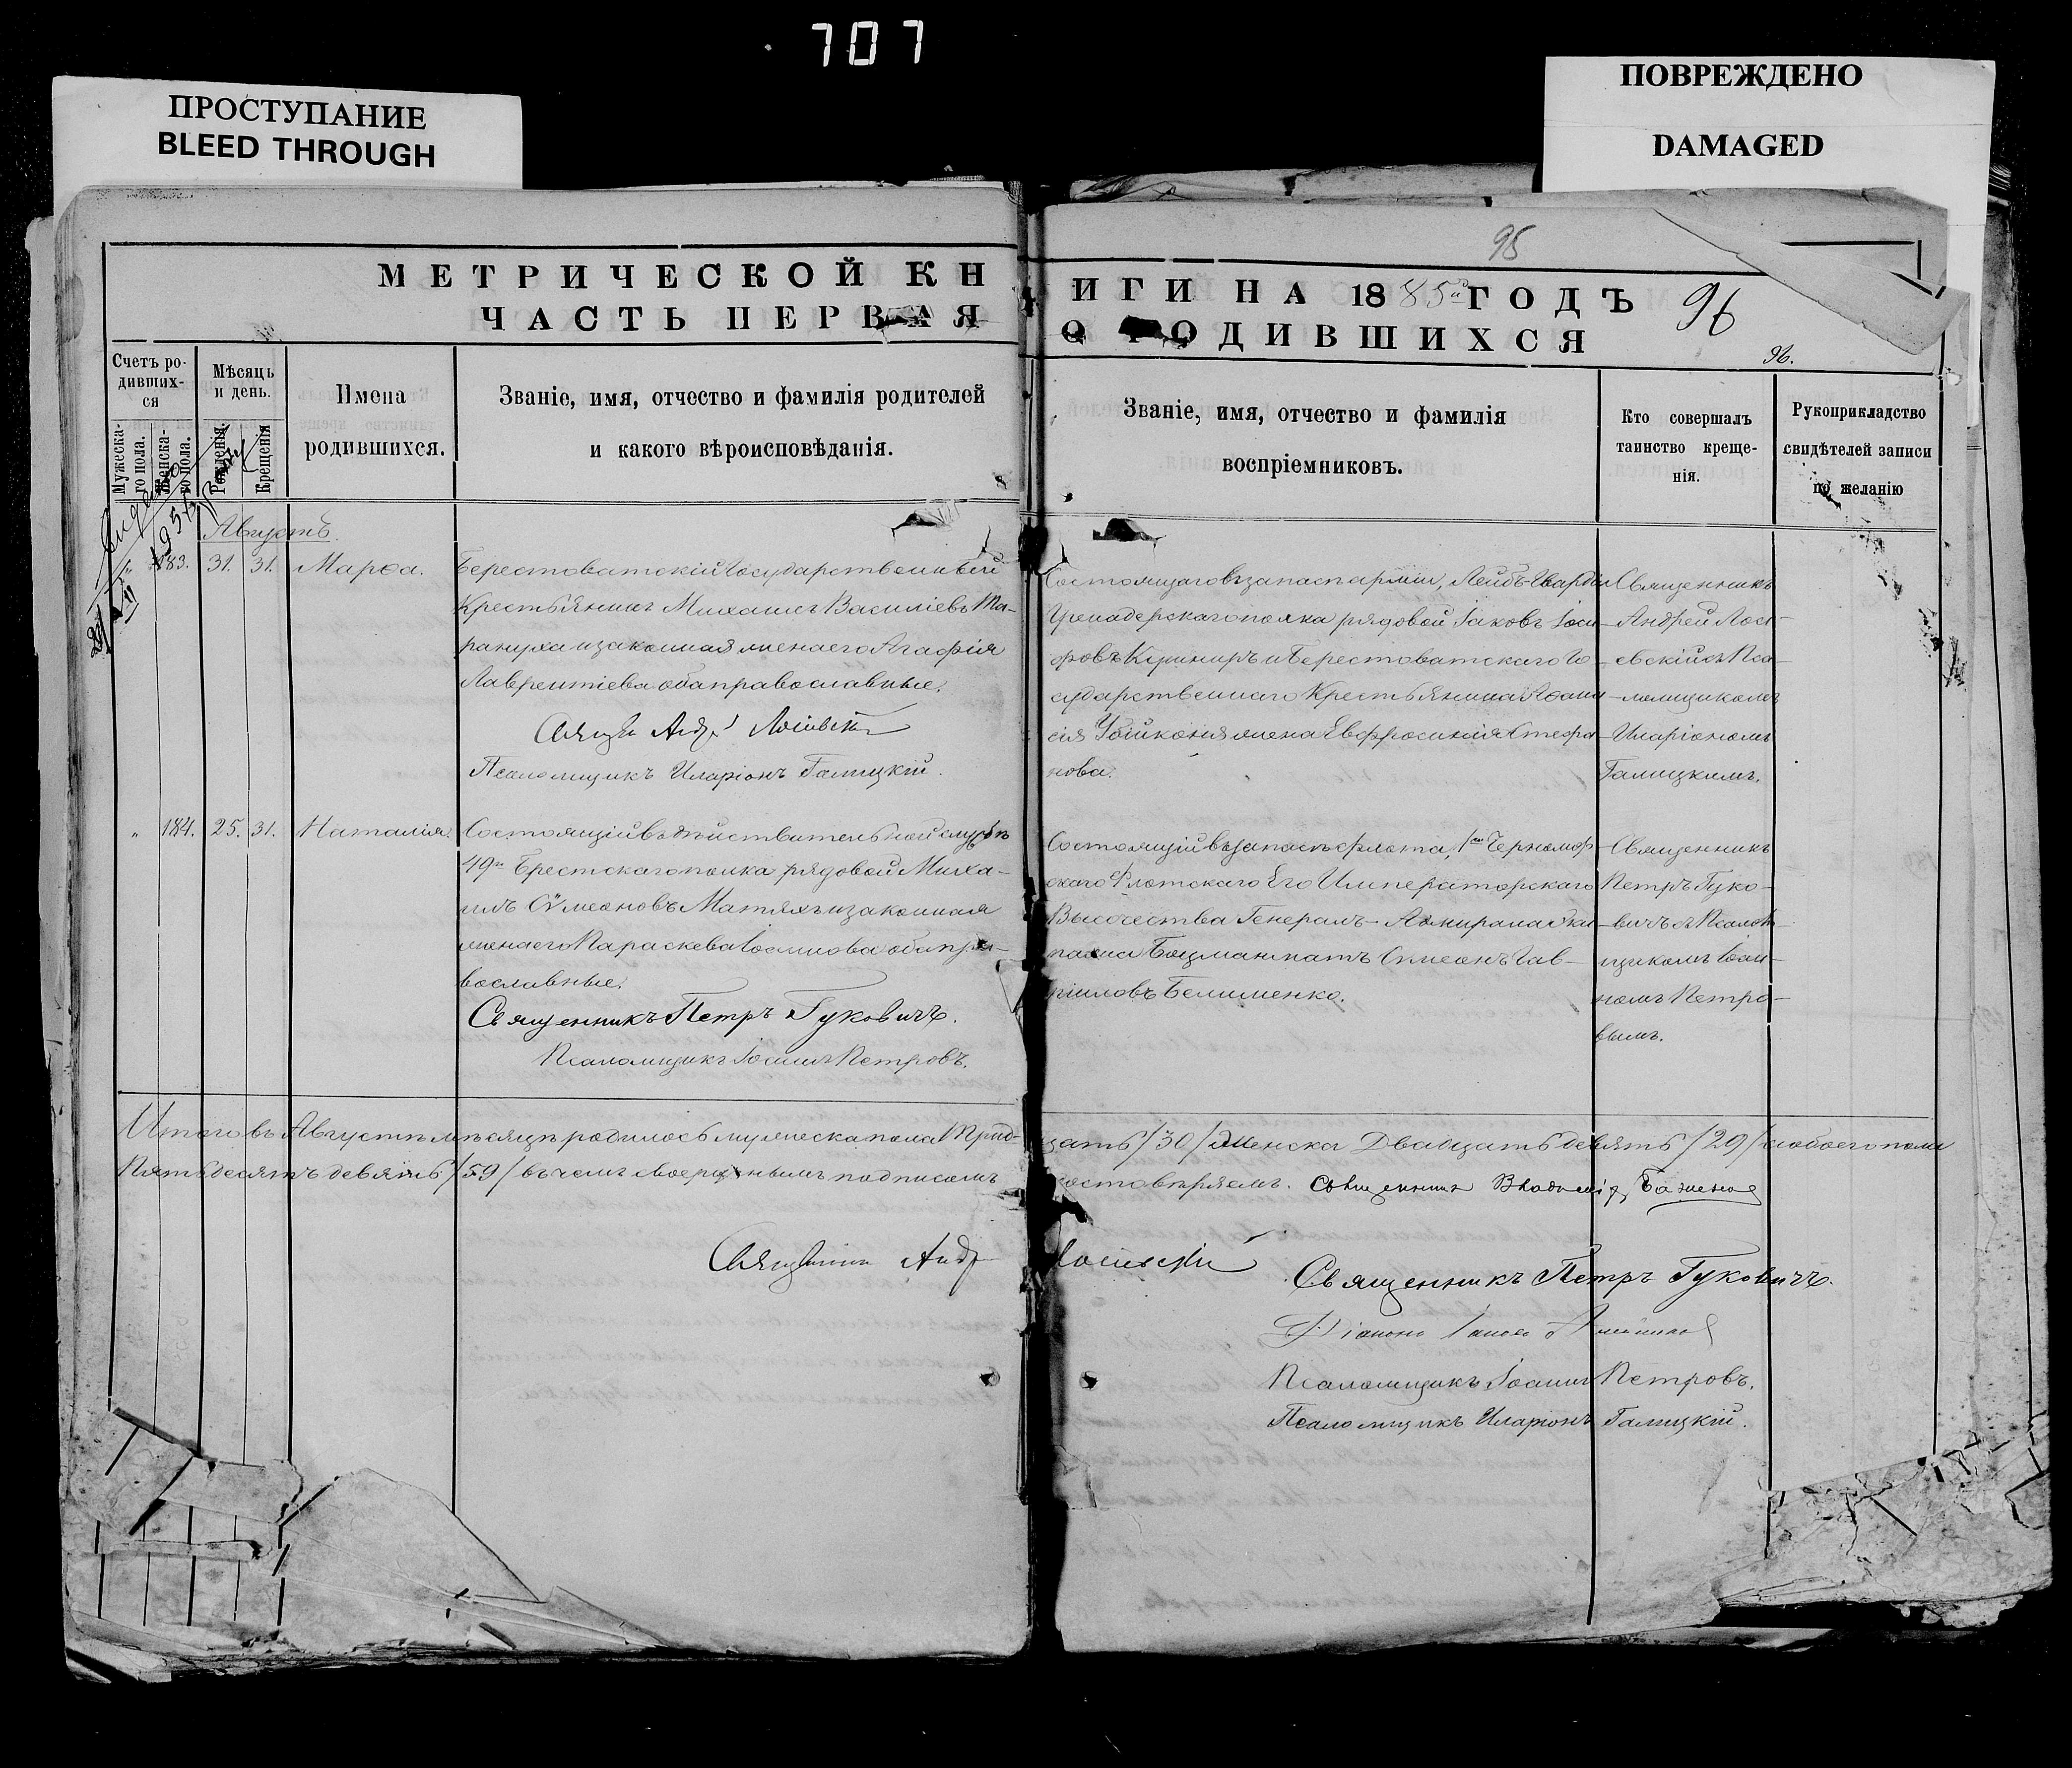 707
ПРОСТУПАНИЕ
BLEED THROUGH
ПОВРЕЖДЕНО
DAMAGED
95
МЕТРИЧЕСКОЙ КНИГИ НА 1885й ГОДЪ
96
ЧАСТЬ ПЕРВАЯ О РОДИВШИХСЯ
96.
Счетъ ро-
дивших-
ся
Мужеска-
го пола.
Женска-
го пола.
Мѣсяцъ
и день.
Рожденія.
Крещенія
Имена
родившихся.
Званіе, имя, отчество и фамилія родителей
и какого вѣроисповѣданія.
Званіе, имя, отчество и фамилія
воспріемниковъ.
Кто совершалъ
таинство креще-
нія.
Рукоприкладство
свидѣтелей записи
по желанію
Августъ.
183. 31. 31. Марѳа.
Берестоватскій Государственный
Крестьянинъ Михаилъ Василіевъ Та-
рануха и законная жена его Агафія
Лаврентіева оба православные.
Андр
Псаломщикъ Иларіонъ Галицкій.
Состоящаго въ запасѣ арміи, Лейбъ-Гвардіи
Гренадерскаго полка рядовой Іаковъ Іоси-
фовъ Кушниръ и Берестоватскаго Го-
сударственнаго Крестьянина Аѳана-
сія жена Евфросинія Стефа-
нова.
Священникъ
Андрей Лоси-
евскій съ Пса-
ломщикомъ
Иларіономъ
Галицкимъ.
" 184. 25. 31. Наталія.
Состоящій въ дѣйствительной службѣ
49го Брестскаго полка рядовой Миха-
илъ Сѵмеоновъ Матяхъ и законная
жена его Параскева Іоаннова оба пра-
вославные.
Священникъ Петръ Гуковичъ.
Псаломщикъ Іоаннъ Петровъ.
Состоящій въ запасѣ флота, 1го Черномор-
скаго Флотскаго Его Императорскаго
Высочества Генералъ-Адмирала Эки-
пажа Боцманматъ Сѵмеонъ Гав-
ріиловъ Белименко.
Священникъ
Петръ Гуко-
вичъ съ Псалом-
щикомъ Іоан-
номъ Петро-
вымъ.
Итого въ Августѣ мѣсяцѣ родилось мужеска пола Трид-
цать /30/ женска Двадцать девять /29/ а обоего пола
Пятьдесятъ девять /59/ въ чемъ своеручнымъ подписомъ
удостовѣряемъ. Священникъ Владимір Баженов
Священникъ Андр Лосіевскій
Священникъ Петръ Гуковичъ.
Діаконъ
Псаломщикъ Іоаннъ Петровъ.
Псаломщикъ Иларіонъ Галицкій.